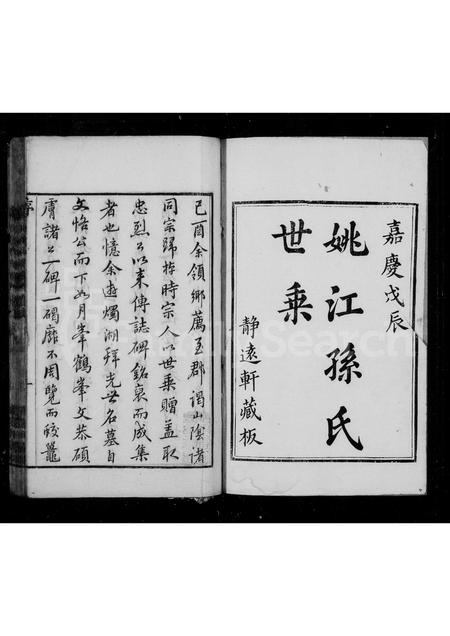 嘉慶戊辰
姚江孫氏
世乘
靜遠軒藏板
己酉余領鄉薦至郡謁山陰諸
同宗歸拵時宗人以世乘贈蓋取
忠烈公以来傳誌碑銘裒而成集
者也憶余遊燭湖拜先世名墓自
文恪公而下如月峯鶴峯文恭碩
膚諸公一碑一碣靡不周覽而皎鼉
序
Search